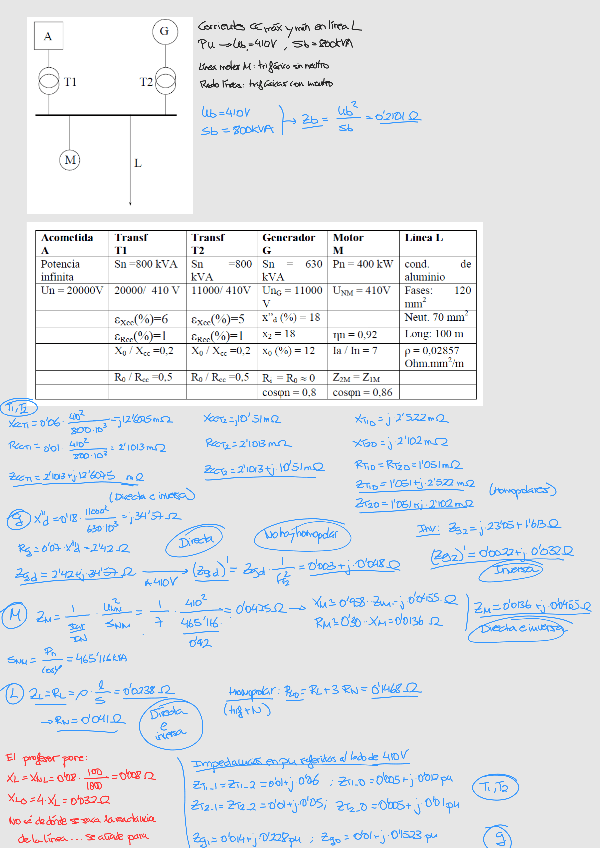 A
G
T1
T2
M
L
Corrientes CC máx y mín en línea L
Pu → Ub=410V , Sb=800kVA
Línea motor M: trifásico sin neutro
Resto líneas: trifásicas con neutro
Ub=410V
Sb=800kVA
→ Zb = Ub² / Sb = 0'2101 Ω
Acometida A | Transf T1 | Transf T2 | Generador G | Motor M | Línea L
Potencia infinita | Sn =800 kVA | Sn =800 kVA | Sn = 630 kVA | Pn = 400 kW | cond. de aluminio
Un = 20000V | 20000/ 410 V | 11000/ 410V | UnG = 11000 V | UNM = 410V | Fases: 120 mm²
εXcc(%)=6 | εXcc(%)=5 | x"d (%) = 18 | Neut. 70 mm²
εRcc(%)=1 | εRcc(%)=1 | x2 = 18 | ηn = 0,92 | Long: 100 m
X0 / Xcc =0,2 | X0 / Xcc =0,2 | x0 (%) = 12 | Ia / In = 7 | ρ = 0,02857 Ohm.mm²/m
R0 / Rcc =0,5 | R0 / Rcc =0,5 | Rs = R0 ≈ 0 | Z2M = Z1M
cosφn = 0,8 | cosφn = 0,86
T1,T2
XccT1=0'06 · 410² / 800·10³ = j12'605 mΩ
XccT2=j10'51mΩ
XT10=j 2'522mΩ
RccT1=0'01 410² / 800·10³ = 2'1013mΩ
RccT2=2'1013mΩ
XT20=j 2'102mΩ
RT10=RT20=1'051mΩ
ZccT1=2'1013+j12'6075 mΩ
ZccT2=2'1013+j10'51mΩ
ZT10=1'051+j·2'522mΩ
ZT20=1'051+j·2'102mΩ
(Homopolares)
(Directa e inversa)
X"d=0'18· 11000² / 630·10³ = j34'57Ω
Directa
No hay homopolar
Rg=0'07·X"d=2'42Ω
Zgd=2'42+j34'57Ω → A 410V (Zgd)' = Zgd · 1 / = 0'003+j·0'048Ω
(Zg2)'=0'0022+j0'032Ω
Inversa
M
ZM = 1 / · / SNM = 1/7 · 410² / = 0'0475Ω → XM=0'98·ZM=j0'0455Ω
RM=0'30·XM=0'0136Ω
ZM=0'0136+j0'0455Ω
Directa e inversa
SNM = Pn / cosφ = 465'116kVA
L
ZL=RL=ρ· l / S = 0'0238Ω
→RN=0'041Ω
Directa e inversa
Homopolar: RL0=RL+3·RN=0'1468Ω
(trif+N)
El profesor pone:
XL= =0'08· 100 / =0'008Ω
XL0=4·XL=0'032Ω
No sé de dónde se saca la reactancia
de la línea... se añade para
Impedancias en pu referidas al lado de 410V
ZT1-1=ZT1-2=0'01+j0'06 ; ZT1-0=0'005+j0'012pu
ZT2-1=ZT2-2=0'01+j0'05; ZT2-0=0'005+j0'01pu
T1,T2
Zg1=0'014+j0'228pu ; Zg2=0'01+j0'1523pu
g